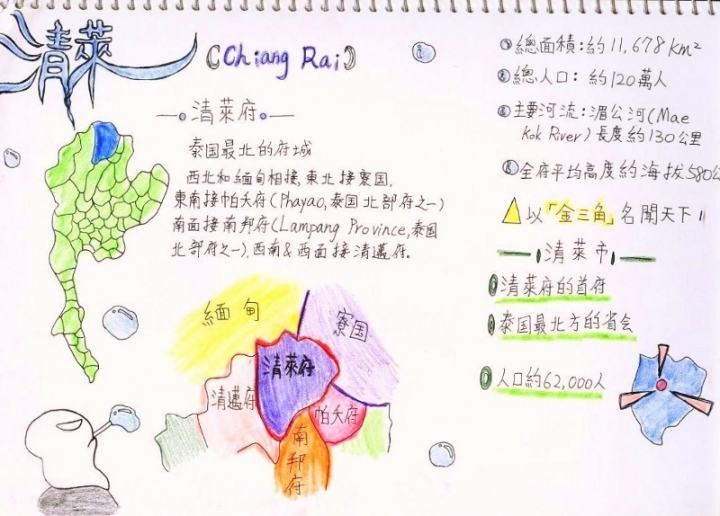 清萊
(Chiang Rai)
清萊府
泰国最北的府城
西北和緬甸相接,東北接寮国,
東南接帕夭府(Phayao,泰国北部府之一)
南面接南邦府(Lampang Province,泰国
北部府之一),西南&西面接清邁府。
緬甸
寮国
清萊府
清邁府
帕夭府
南
邦
府
①總面積:約11,678km²
②總人口:約120萬人
③主要河流:湄公河(Mae
Kok River)長度約130公里
④全府平均高度約海拔580公
以「金三角」名聞天下!!
清萊市
清萊府的首府
泰国最北方的省会
人口約62,000人